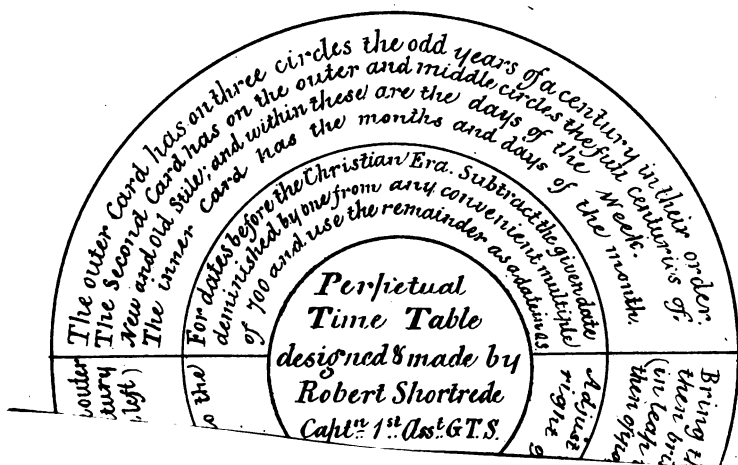 The outer Card has on three circles the odd years of a century in their order.
The Second Card has on the outer and middle circles the full centuries of
New and Old Stile; and within these are the days of the Week.
The inner Card has the months and days of the month.
For dates before the Christian Era. Subtract the given date
deminished by one from any convenient multiple
of 700 and use the remainder as a date in A.S.
Perpetual
Time Table
designed & made by
Robert Shortrede
Captn. 1st Asst. G.T.S.
outer
tury
left)
o the
Adjust
right
Bring th
then bri
(in leap
then